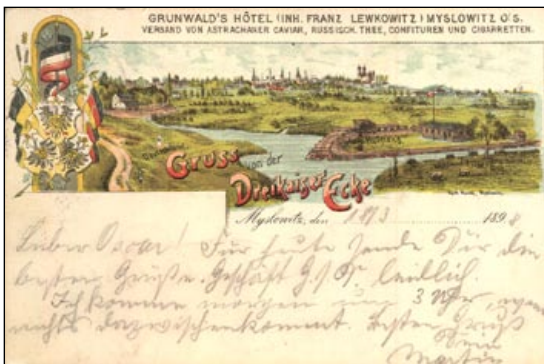 GRUNWALD'S HÔTEL (INH. FRANZ LEWKOWITZ) MYSLOWITZ O/S.
VERSAND VON ASTRACHANER CAVIAR, RUSSISCH. THEE, CONFITUREN UND CIGARRETTEN.
Gruss von der
Dreikaiser Ecke
Myslowitz, den 18/3 1898
Lieber Oscar! Für heute sende Dir die
besten Grüße. Geschäft leidlich.
Ich komme morgen um 3 Uhr, wenn
nichts dazwischenkommt. Besten Gruß
Dein
Martin